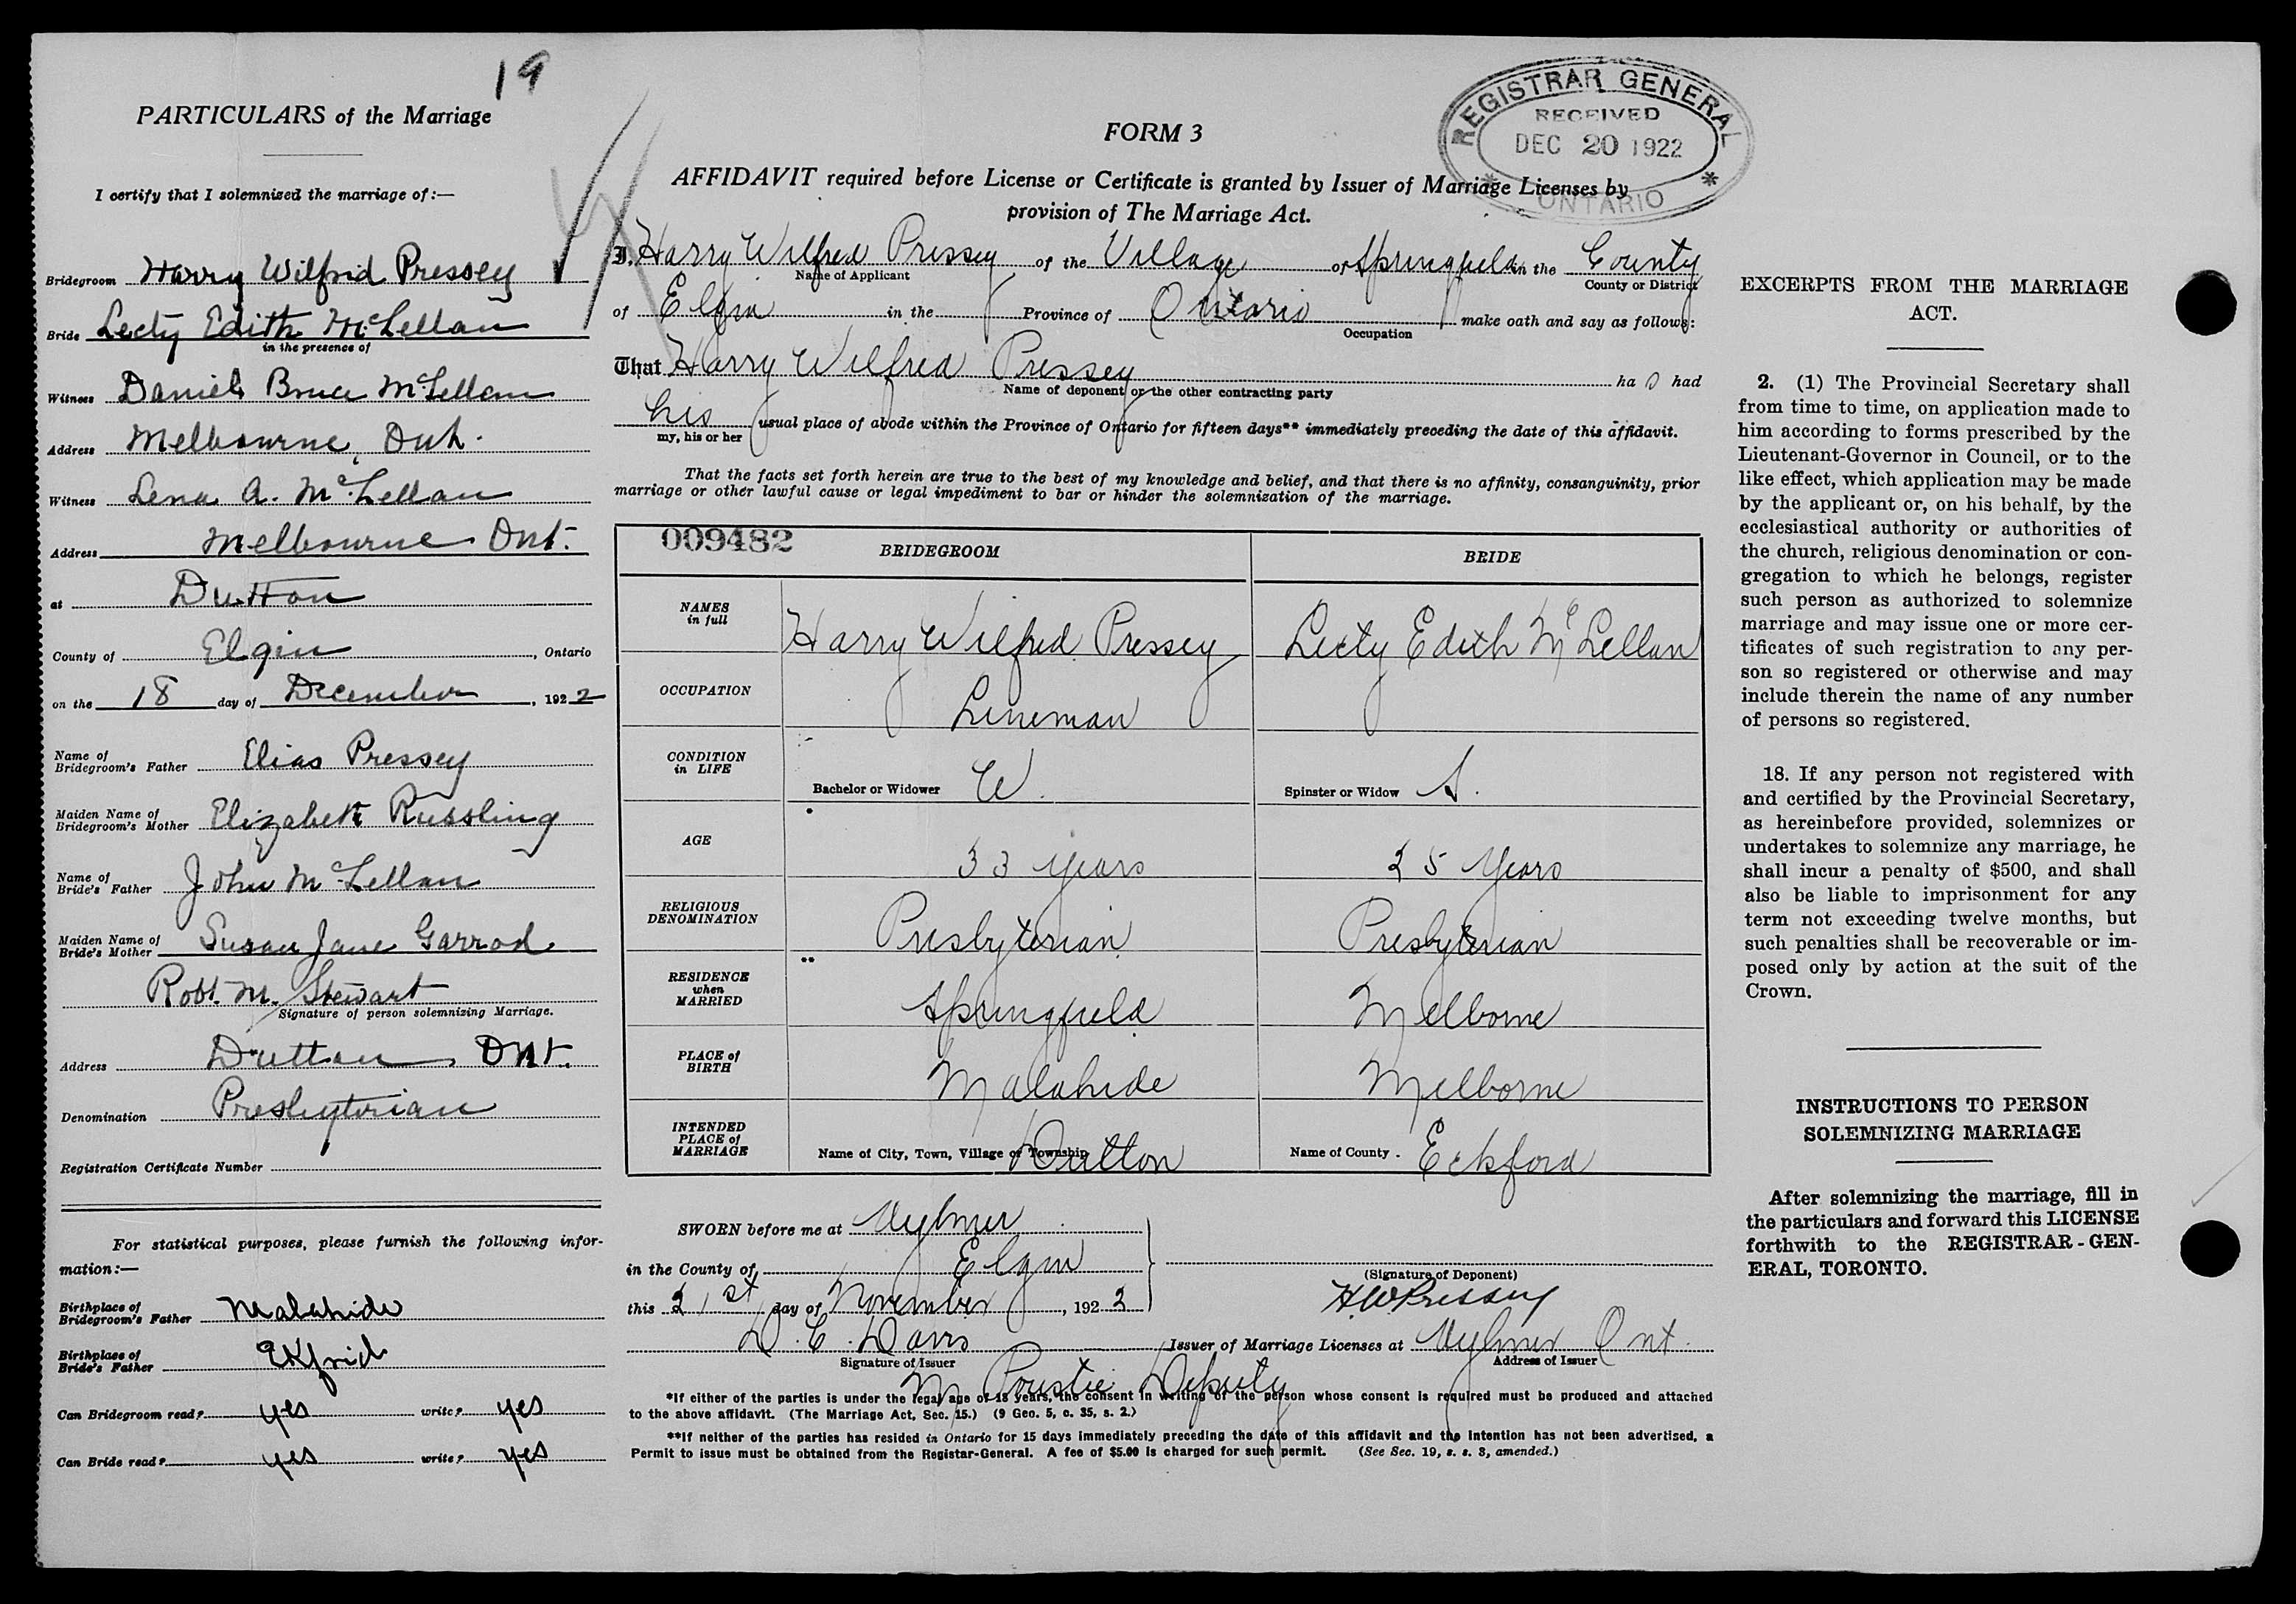 19
PARTICULARS of the Marriage
I certify that I solemnized the marriage of:—
Bridegroom Harry Wilfrid Pressey
Bride Lecty Edith McLellan
in the presence of
Witness Daniel Bruce McLellan
Address Melbourne, Ont.
Witness Lena A. McLellan
Address Melbourne Ont.
at Dutton
County of Elgin, Ontario
on the 18 day of December, 1922
Name of
Bridegroom's Father Elias Pressey
Maiden Name of
Bridegroom's Mother Elizabeth Russling
Name of
Bride's Father John McLellan
Maiden Name of
Bride's Mother Susan Jane Garrod
Robt. M. Stewart
Signature of person solemnizing Marriage.
Address Dutton, Ont.
Denomination Presbyterian
Registration Certificate Number
For statistical purposes, please furnish the following infor-
mation:—
Birthplace of
Bridegroom's Father Malahide
Birthplace of
Bride's Father Ekfrid
Can Bridegroom read? yes write? yes
Can Bride read? yes write? yes
REGISTRAR GENERAL
RECEIVED
DEC 20 1922
ONTARIO
FORM 3
AFFIDAVIT required before License or Certificate is granted by Issuer of Marriage Licenses by
provision of The Marriage Act.
I, Harry Wilfred Pressey of the Village of Springfield in the County
Name of Applicant County or District
of Elgin in the Province of Ontario make oath and say as follows:
Occupation
That Harry Wilfred Pressey ha had
Name of deponent or the other contracting party
his usual place of abode within the Province of Ontario for fifteen days** immediately preceding the date of this affidavit.
my, his or her
That the facts set forth herein are true to the best of my knowledge and belief, and that there is no affinity, consanguinity, prior
marriage or other lawful cause or legal impediment to bar or hinder the solemnization of the marriage.
009482
BRIDEGROOM BRIDE
NAMES
in full Harry Wilfred Pressey Lecty Edith McLellan
OCCUPATION Lineman
CONDITION
in LIFE Bachelor or Widower W. Spinster or Widow S.
AGE 33 years 25 Years
RELIGIOUS
DENOMINATION Presbyterian Presbyterian
RESIDENCE
when
MARRIED Springfield Melborne
PLACE of
BIRTH Malahide Melborne
INTENDED
PLACE of
MARRIAGE Name of City, Town, Village or Township Dutton Name of County. Eckford
SWORN before me at Aylmer
in the County of Elgin
(Signature of Deponent)
this 21st day of November, 1922 H W Pressey
D. C. Davis Issuer of Marriage Licenses at Aylmer Ont.
Signature of Issuer Address of Issuer
M Poustie Deputy
*If either of the parties is under the legal age of 18 years, the consent in writing of the person whose consent is required must be produced and attached
to the above affidavit. (The Marriage Act, Sec. 15.) (9 Geo. 5, c. 35, s. 2.)
**If neither of the parties has resided in Ontario for 15 days immediately preceding the date of this affidavit and the intention has not been advertised, a
Permit to issue must be obtained from the Registar-General. A fee of $5.00 is charged for such permit. (See Sec. 19, s. s. 3, amended.)
EXCERPTS FROM THE MARRIAGE
ACT.
2. (1) The Provincial Secretary shall
from time to time, on application made to
him according to forms prescribed by the
Lieutenant-Governor in Council, or to the
like effect, which application may be made
by the applicant or, on his behalf, by the
ecclesiastical authority or authorities of
the church, religious denomination or con-
gregation to which he belongs, register
such person as authorized to solemnize
marriage and may issue one or more cer-
tificates of such registration to any per-
son so registered or otherwise and may
include therein the name of any number
of persons so registered.
18. If any person not registered with
and certified by the Provincial Secretary,
as hereinbefore provided, solemnizes or
undertakes to solemnize any marriage, he
shall incur a penalty of $500, and shall
also be liable to imprisonment for any
term not exceeding twelve months, but
such penalties shall be recoverable or im-
posed only by action at the suit of the
Crown.
INSTRUCTIONS TO PERSON
SOLEMNIZING MARRIAGE
After solemnizing the marriage, fill in
the particulars and forward this LICENSE
forthwith to the REGISTRAR-GEN-
ERAL, TORONTO.